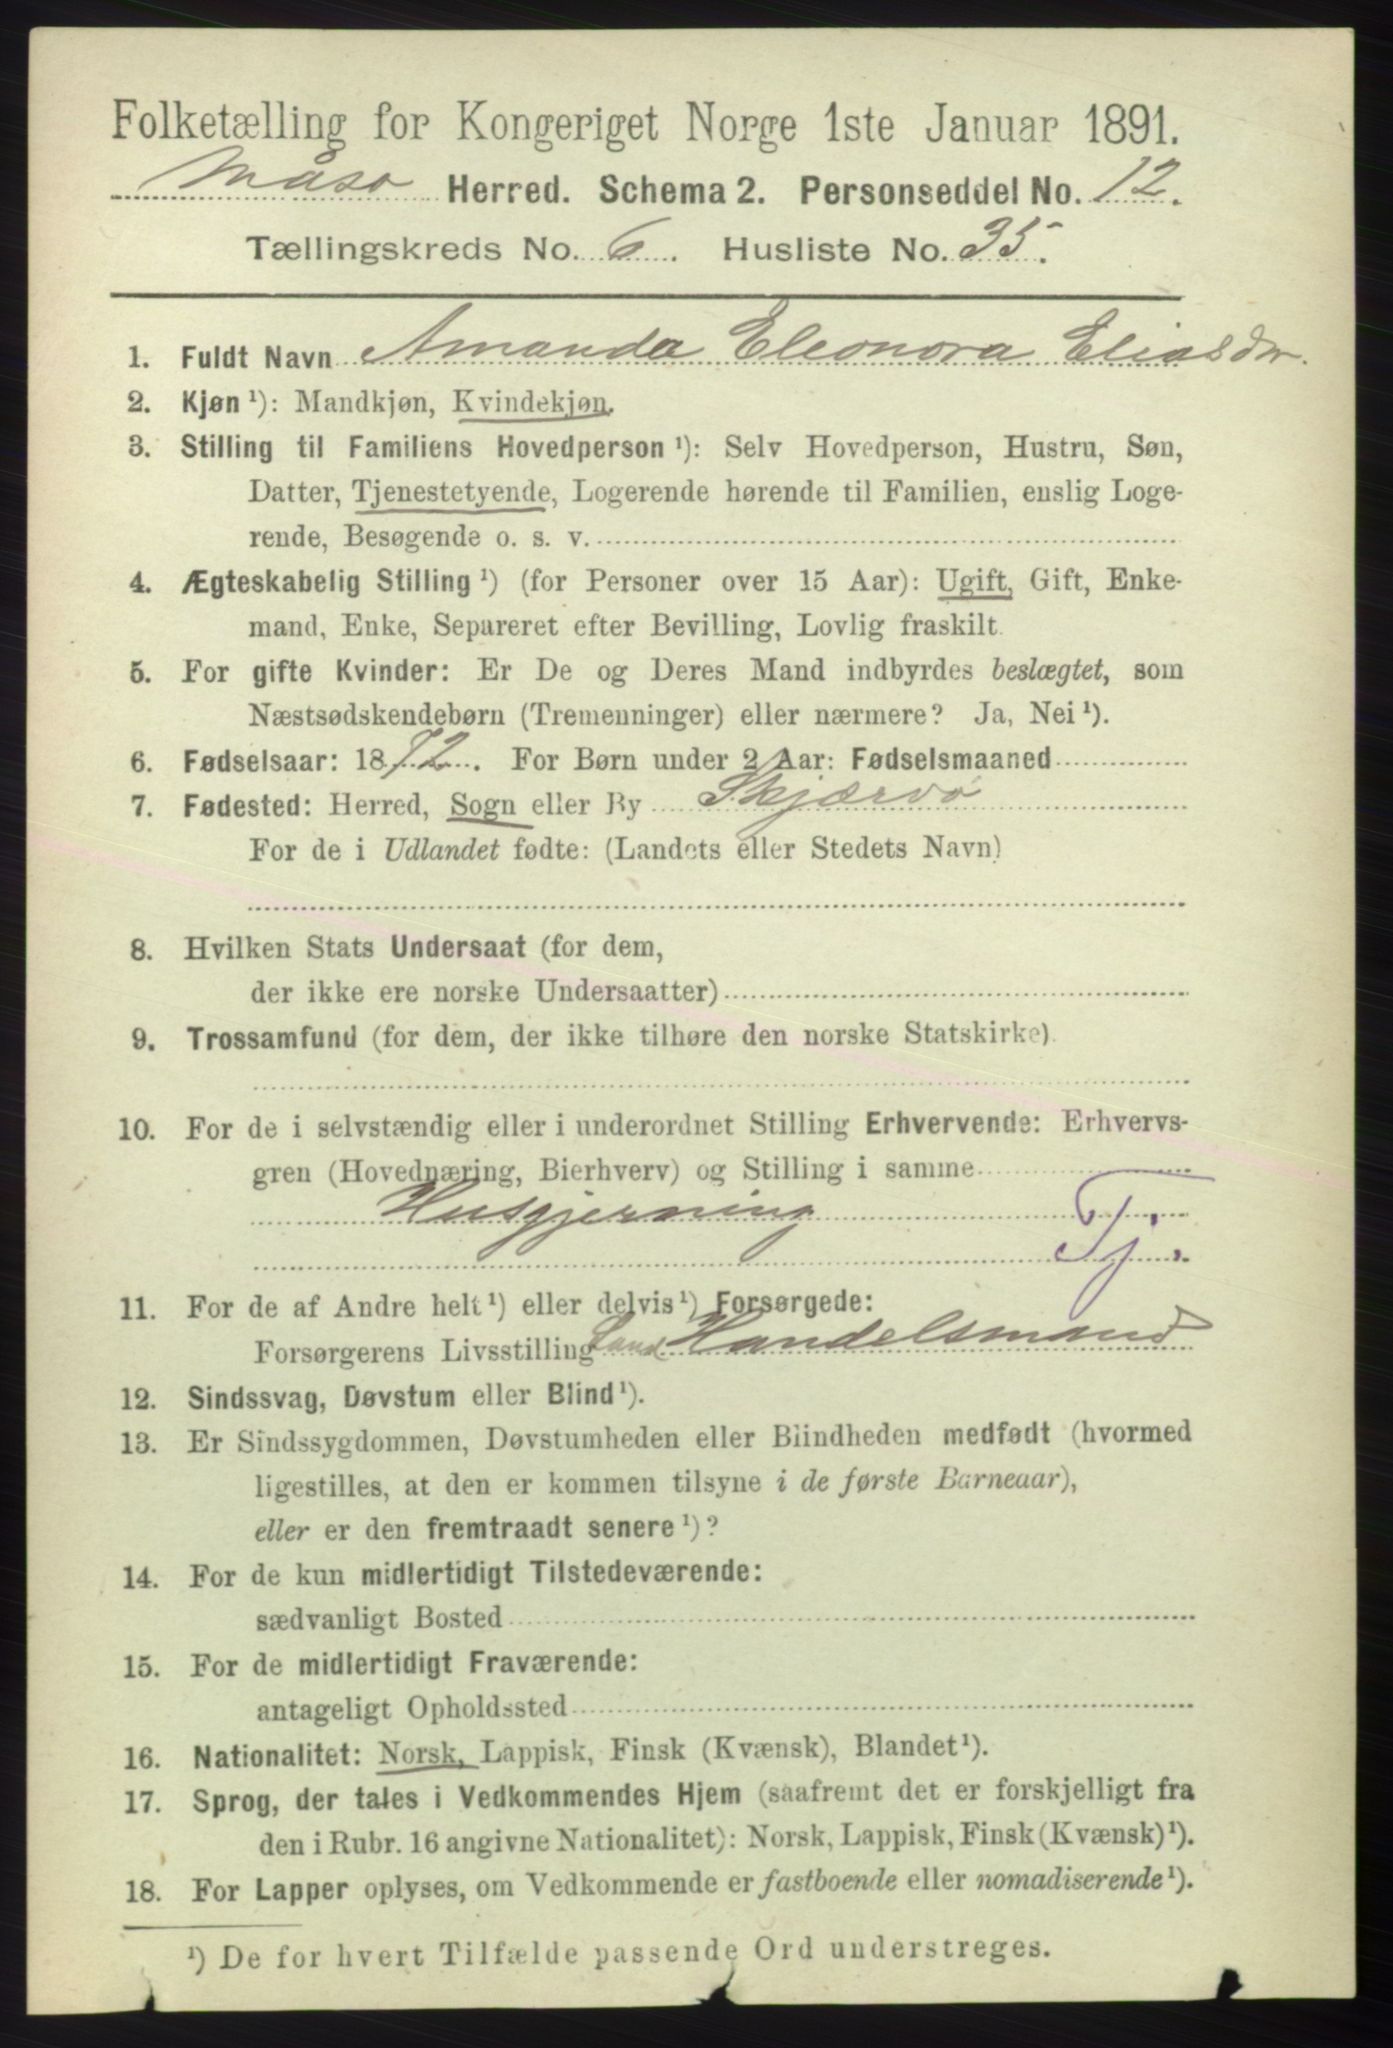 Folketælling for Kongeriget Norge 1ste Januar 1891.
Måsø Herred. Schema 2. Personseddel No. 12.
Tællingskreds No. 6. Husliste No. 35.
1. Fuldt Navn Amanda Eleonora Eliasdr.
2. Kjøn ¹): Mandkjøn, Kvindekjøn.
3. Stilling til Familiens Hovedperson ¹): Selv Hovedperson, Hustru, Søn,
Datter, Tjenestetyende, Logerende hørende til Familien, enslig Loge-
rende, Besøgende o. s. v.
4. Ægteskabelig Stilling ¹) (for Personer over 15 Aar): Ugift, Gift, Enke-
mand, Enke, Separeret efter Bevilling, Lovlig fraskilt.
5. For gifte Kvinder: Er De og Deres Mand indbyrdes beslægtet, som
Næstsødskendebørn (Tremenninger) eller nærmere? Ja, Nei ¹).
6. Fødselsaar: 1872. For Børn under 2 Aar: Fødselsmaaned
7. Fødested: Herred, Sogn eller By Skjærvø
For de i Udlandet fødte: (Landets eller Stedets Navn)
8. Hvilken Stats Undersaat (for dem,
der ikke ere norske Undersaatter)
9. Trossamfund (for dem, der ikke tilhøre den norske Statskirke).
10. For de i selvstændig eller i underordnet Stilling Erhvervende: Erhvervs-
gren (Hovednæring, Bierhverv) og Stilling i samme
Husgjerning
Tj.
11. For de af Andre helt ¹) eller delvis ¹) Forsørgede:
Forsørgerens Livsstilling Land Handelsmand
12. Sindssvag, Døvstum eller Blind ¹).
13. Er Sindssygdommen, Døvstumheden eller Blindheden medfødt (hvormed
ligestilles, at den er kommen tilsyne i de første Barneaar),
eller er den fremtraadt senere ¹)?
14. For de kun midlertidigt Tilstedeværende:
sædvanligt Bosted
15. For de midlertidigt Fraværende:
antageligt Opholdssted
16. Nationalitet: Norsk, Lappisk, Finsk (Kvænsk), Blandet ¹).
17. Sprog, der tales i Vedkommendes Hjem (saafremt det er forskjelligt fra
den i Rubr. 16 angivne Nationalitet): Norsk, Lappisk, Finsk (Kvænsk) ¹).
18. For Lapper oplyses, om Vedkommende er fastboende eller nomadiserende ¹).
¹) De for hvert Tilfælde passende Ord understreges.